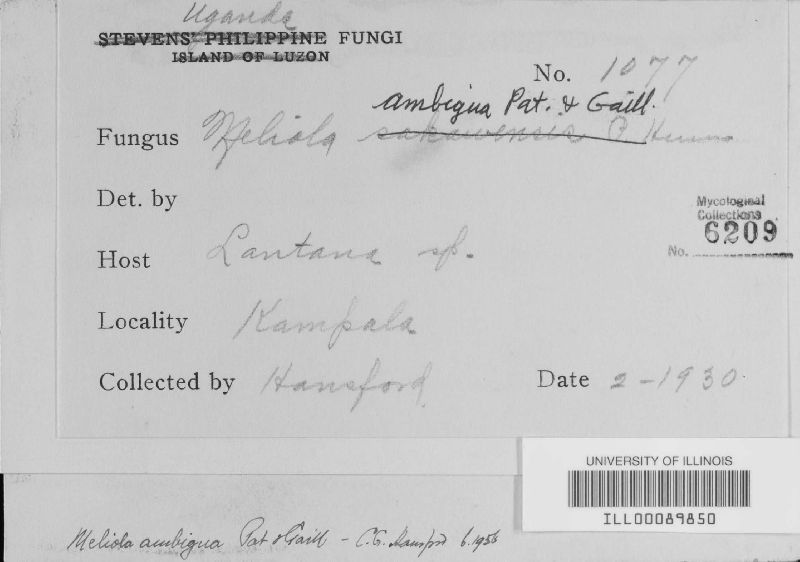 Uganda
STEVENS' PHILIPPINE FUNGI
ISLAND OF LUZON
No. 1077
ambigua Pat. & Gaill.
Fungus Meliola sakawensis P. Henn
Det. by
Mycological
Collections
6209
No.
Host Lantana sp.
Locality Kampala
Collected by Hansford
Date 2-1930
UNIVERSITY OF ILLINOIS
ILL00089850
Meliola ambigua Pat & Gaill - C.G. Hansford 6.1956